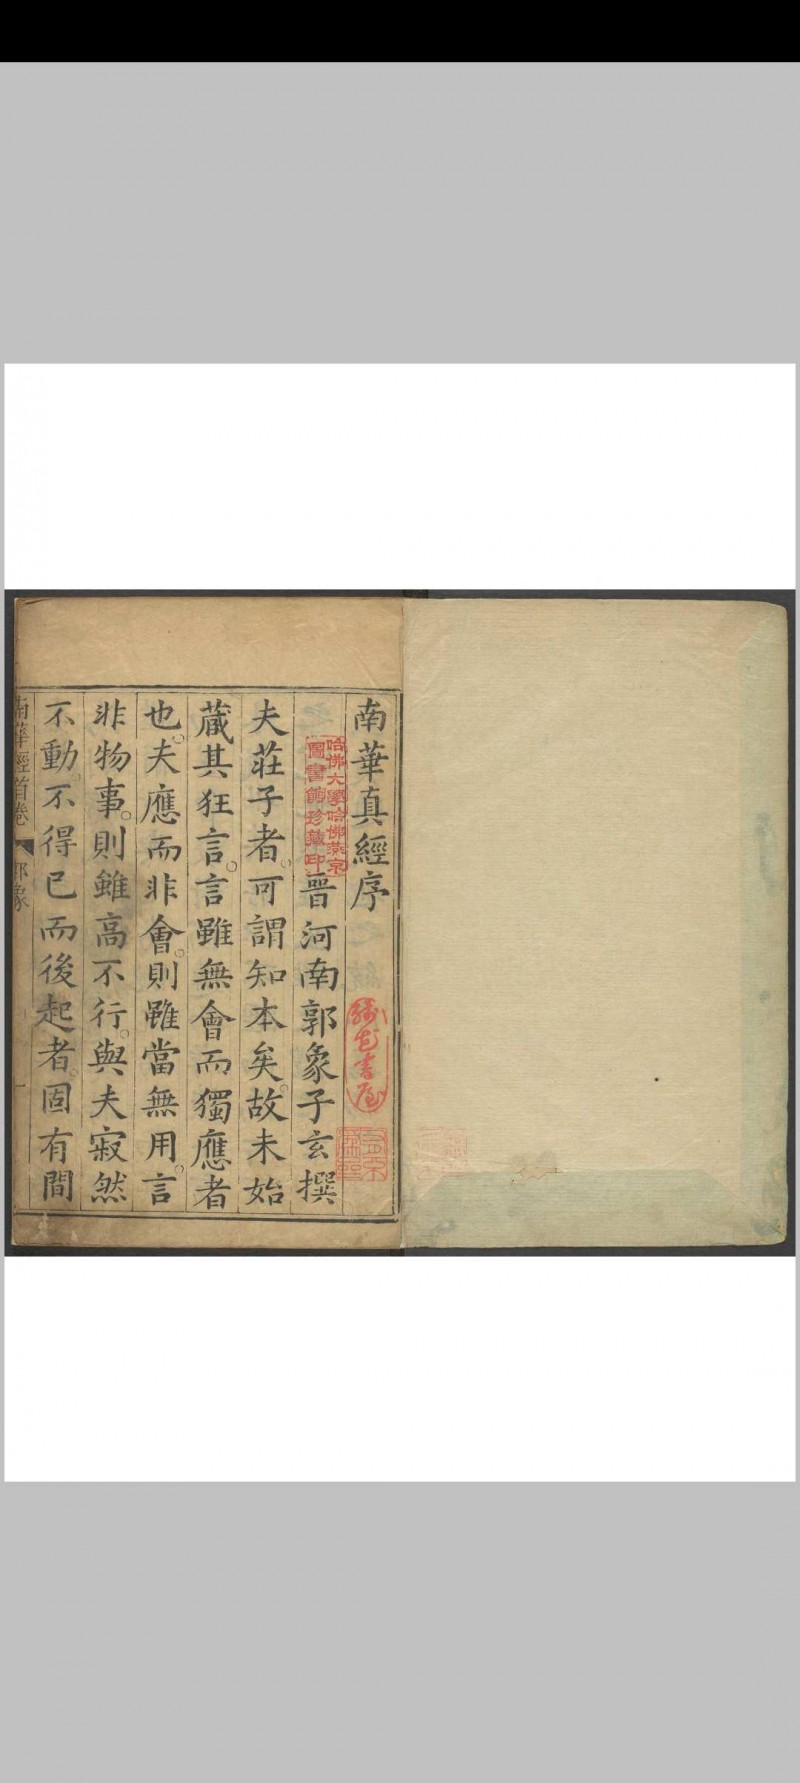 南華真經序
晉河南郭象子玄撰
夫莊子者可謂知本矣故未始
藏其狂言言雖無會而獨應者
也夫應而非會則雖當無用言
非物事則雖高不行與夫寂然
不動不得已而後起者固有間
南華經首卷
郭象
哈佛大學哈佛燕京
圖書館珍藏印